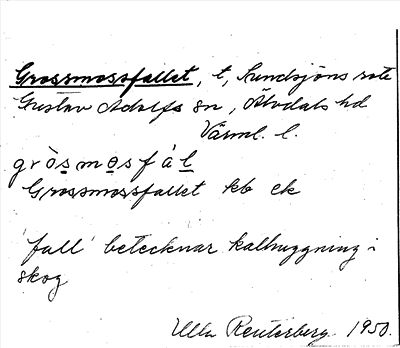 Grossmossfallet, t, Sundsjöns rote
Gustav Adolfs sn, Älvdals hd
Värml. l.
gròsmosfál
Grossmossfallet kb ek
'fall' betecknar kalhuggning i
skog
Ulla Reuterberg 1950.